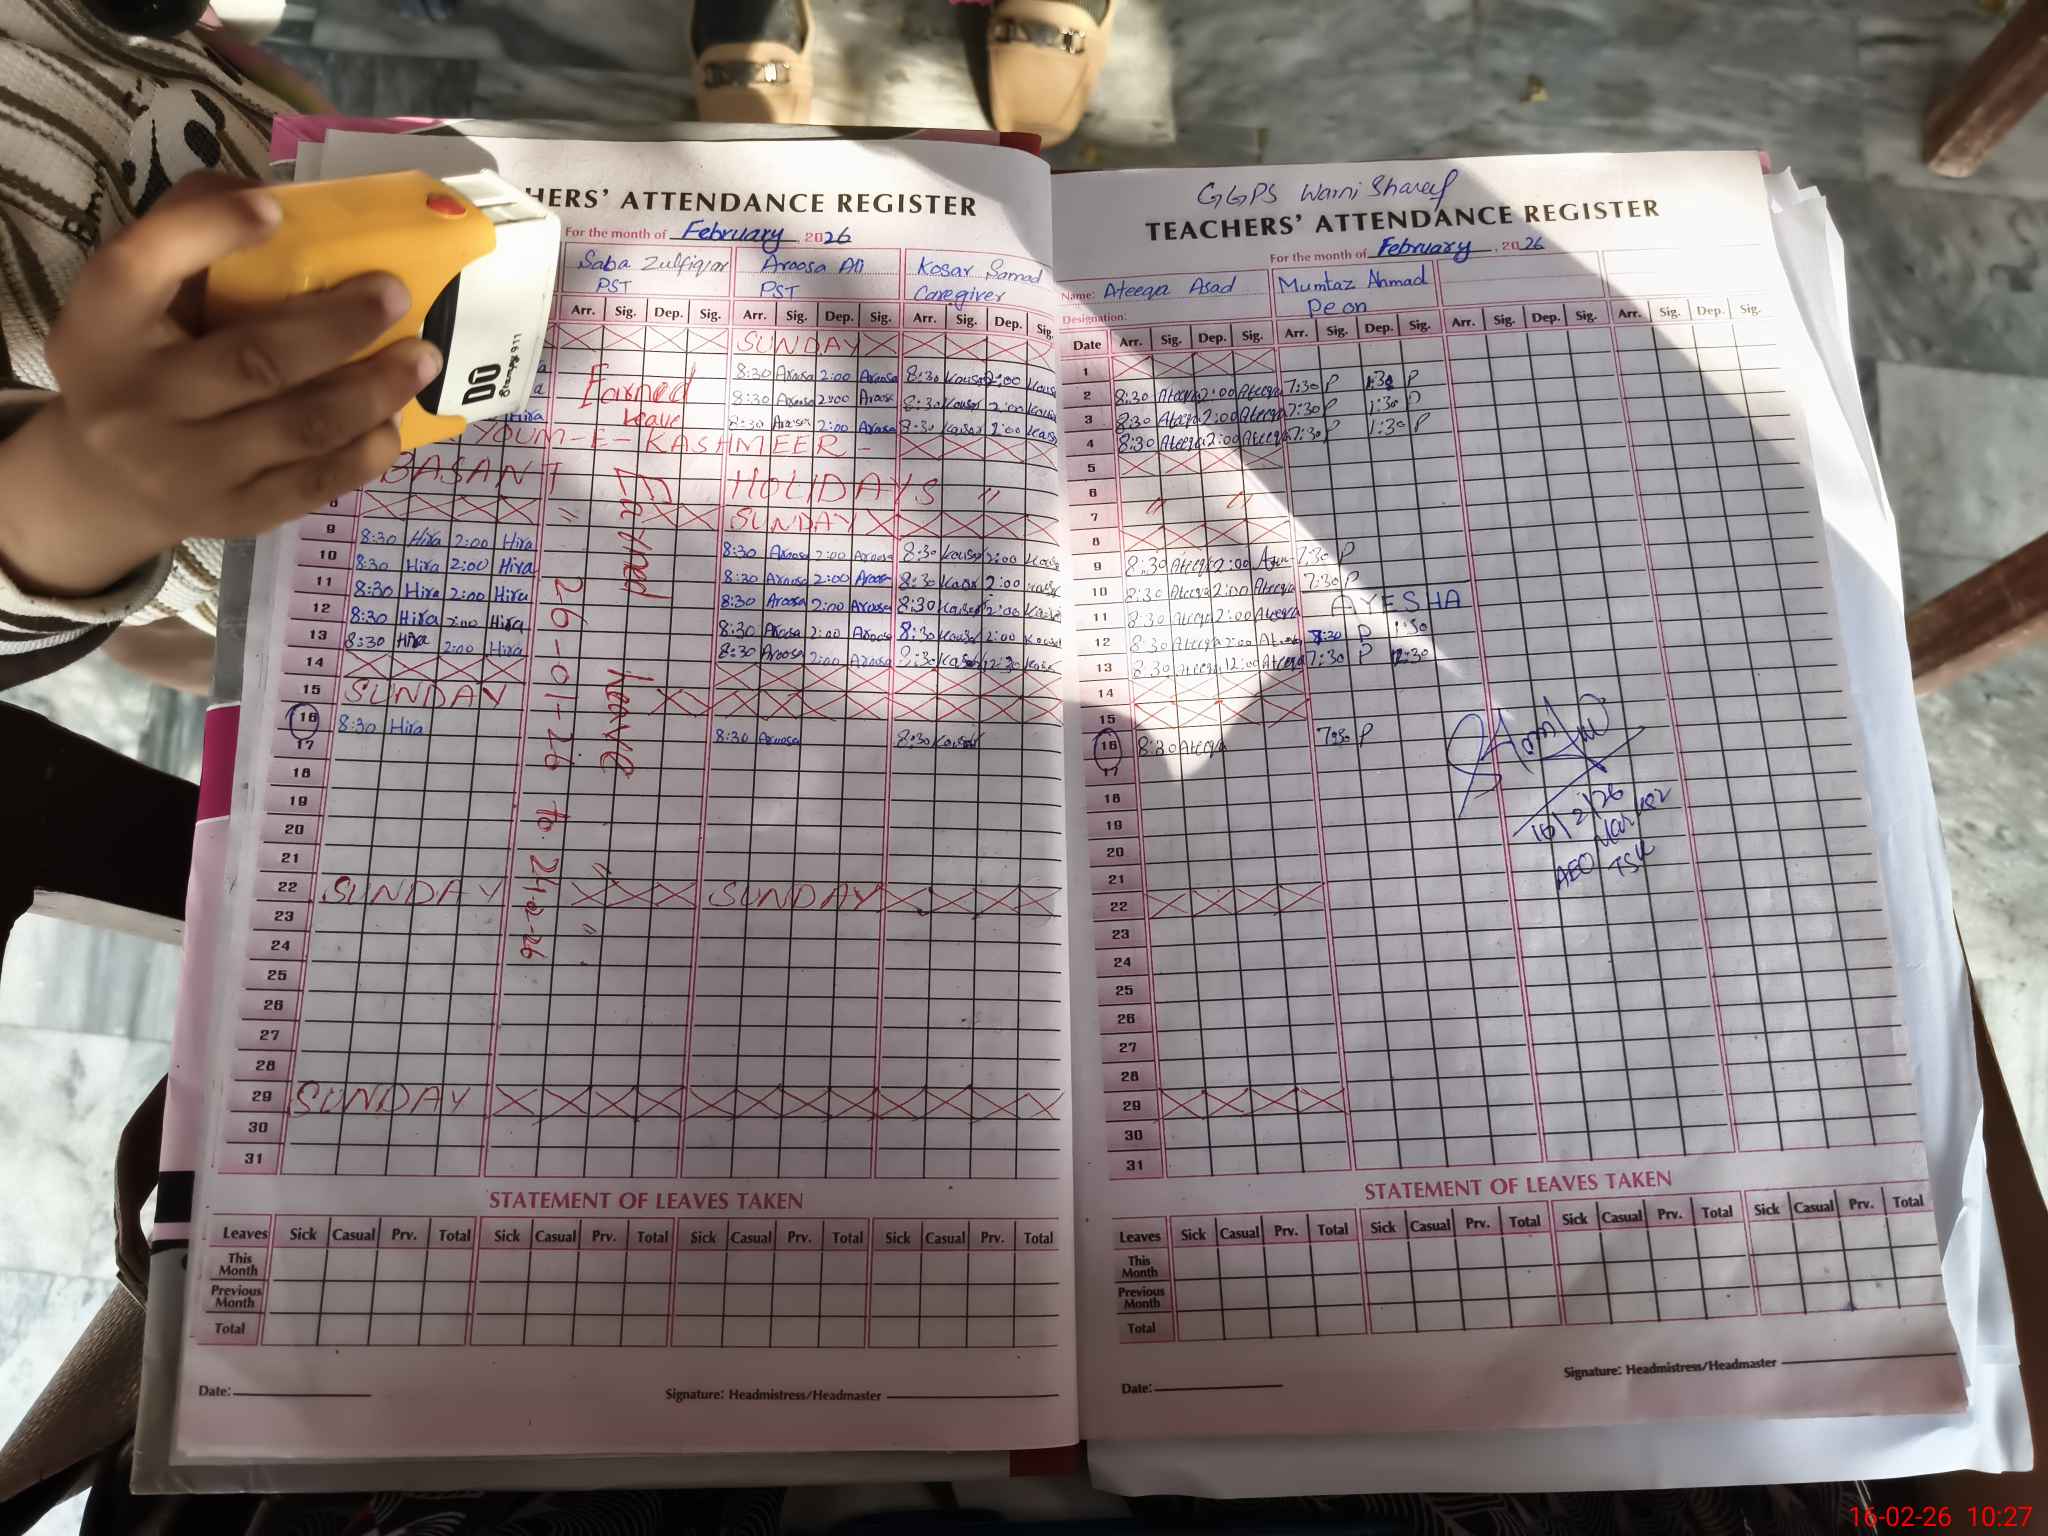 HERS' ATTENDANCE REGISTER
For the month of February, 2026
Saba Zulfiqar Aroosa Ali Kosar Samad
PST PST Caregiver
Arr. Sig. Dep. Sig. Arr. Sig. Dep. Sig. Arr. Sig. Dep. Sig.
SUNDAY
8:30 Aroosa 2:00 Aroosa 8:30 Kousar 2:00
8:30 Aroosa 2:00 Aroosa 8:30 Kousar 2:00
Hira 8:30 Aroosa 2:00 Aroosa 8:30 Kousar 2:00
Earned
leave
YOUM-E-KASHMEER-
BASANT HOLIDAYS "
8 " SUNDAY
9 8:30 Hira 2:00 Hira 8:30 Aroosa 2:00 Aroosa 8:30 Kousar 2:00
10 8:30 Hira 2:00 Hira 8:30 Aroosa 2:00 Aroosa 8:30 Kousar 2:00
11 8:30 Hira 2:00 Hira 8:30 Aroosa 2:00 Aroosa 8:30 Kousar 2:00
12 8:30 Hira 2:00 Hira 8:30 Aroosa 2:00 Aroosa 8:30 Kousar 2:00
13 8:30 Hira 2:00 Hira 8:30 Aroosa 2:00 Aroosa 8:30 Kousar 12:30
Earned leave
26-01-26 to 24-2-26
14
15 SUNDAY
16 8:30 Hira 8:30 Aroosa 8:30 Kousar
17
18
19
20
21
22 SUNDAY SUNDAY
23
24
25
26
27
28
29 SUNDAY
30
31
STATEMENT OF LEAVES TAKEN
Leaves Sick Casual Prv. Total Sick Casual Prv. Total Sick Casual Prv. Total Sick Casual Prv. Total
This Month
Previous Month
Total
Date: Signature: Headmistress/Headmaster
GGPS Warni Shareef
TEACHERS' ATTENDANCE REGISTER
For the month of February, 2026
Name: Ateeqa Asad Mumtaz Ahmad
Designation: Peon
Date Arr. Sig. Dep. Sig. Arr. Sig. Dep. Sig. Arr. Sig. Dep. Sig. Arr. Sig. Dep. Sig.
1
2 8:30 Ateeqa 2:00 Ateeqa 7:30 P 1:30 P
3 8:30 Ateeqa 2:00 Ateeqa 7:30 P 1:30 P
4 8:30 Ateeqa 2:00 Ateeqa 7:30 P 1:30 P
5
6
7 " "
8
9 8:30 Ateeqa 2:00 7:30 P
10 8:30 Ateeqa 2:00 Ateeqa 7:30 P
11 8:30 Ateeqa 2:00 Ateeqa AYESHA
12 8:30 Ateeqa 2:00 Ateeqa 7:30 P 1:30
13 8:30 Ateeqa 12:00 Ateeqa 7:30 P 12:30
14
15
16 8:30 Ateeqa 7:30 P
17
18
19
20
21
16/2/26
AEO Markaz
TSK
22
23
24
25
26
27
28
29
30
31
STATEMENT OF LEAVES TAKEN
Leaves Sick Casual Prv. Total Sick Casual Prv. Total Sick Casual Prv. Total Sick Casual Prv. Total
This Month
Previous Month
Total
Date: Signature: Headmistress/Headmaster
DUX
16-02-26 10:27